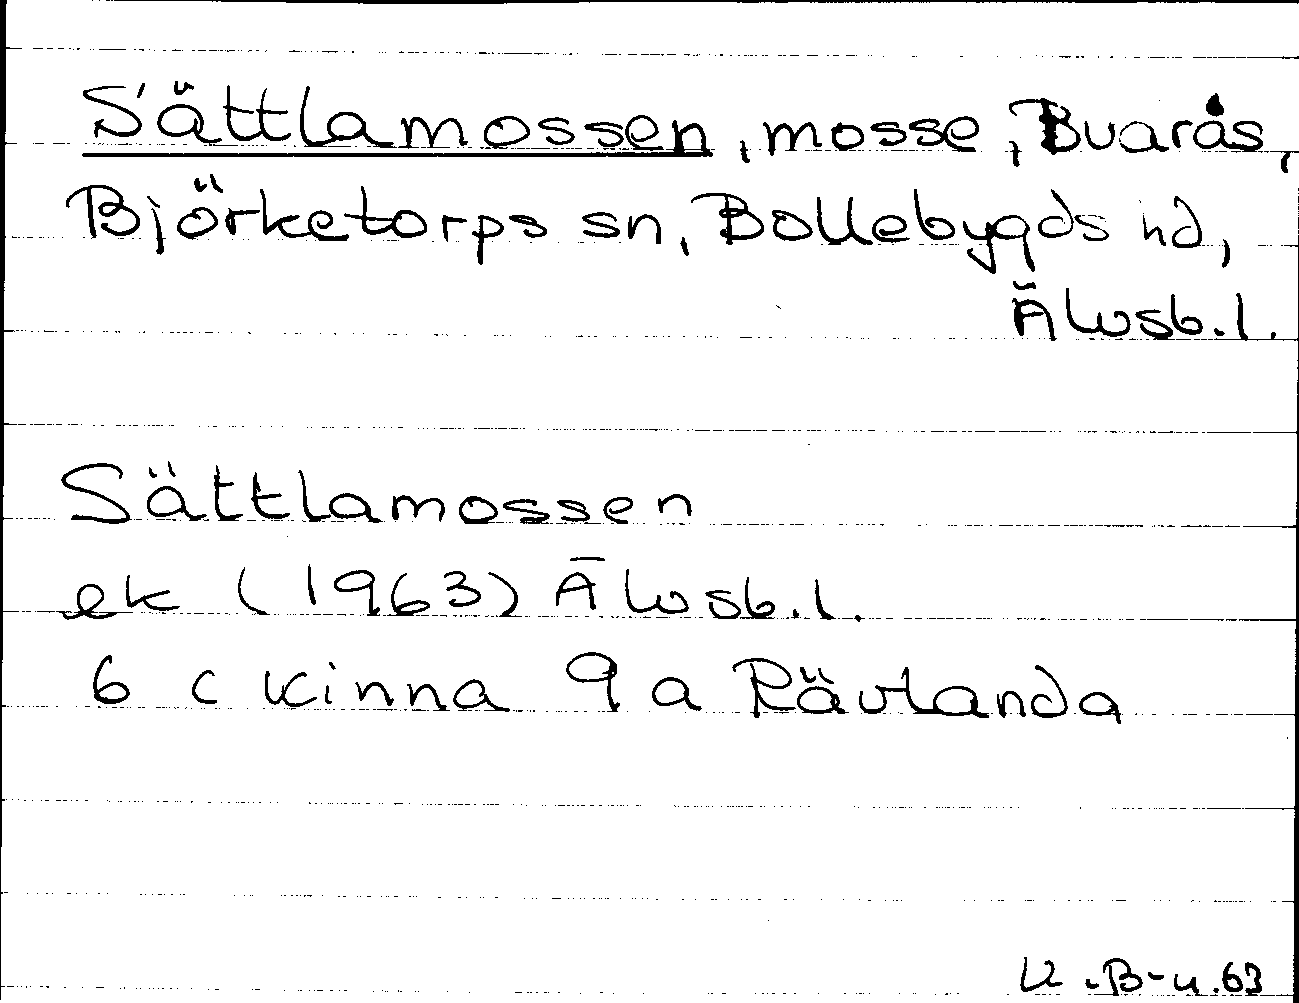 Sättlamossen, mosse, Buarås,
Björketorps sn, Bollebygds hd,
Älvsb.l.
Sättlamossen
ek (1963) Älvsb.l.
6 c Kinna 9 a Rävlanda
K.B-u.63